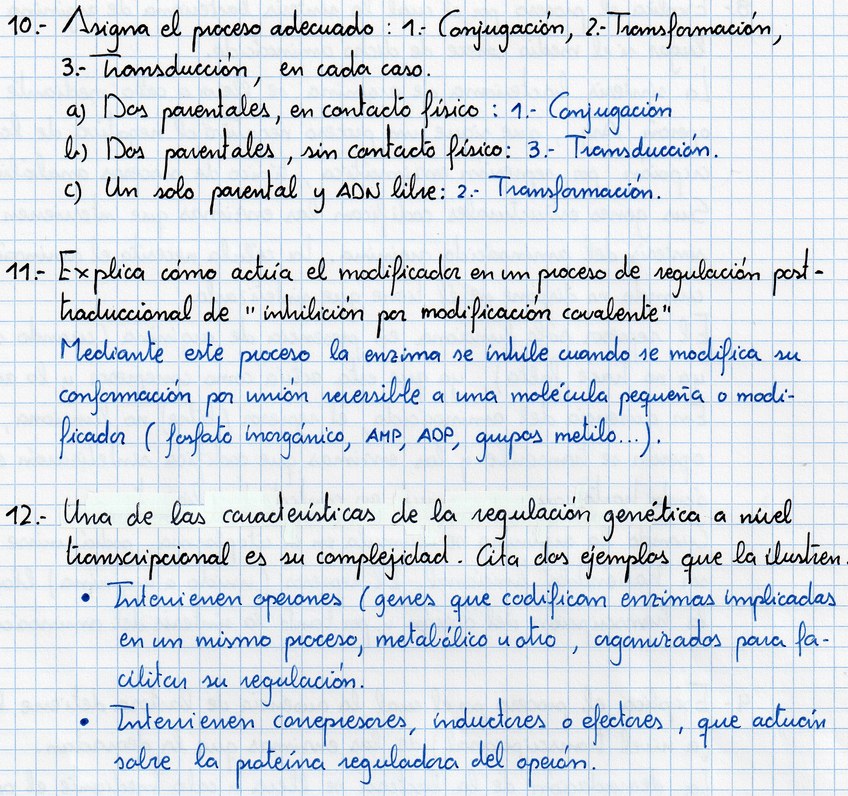 10.- Asigna el proceso adecuado : 1.- Conjugación, 2.- Transformación,
3.- Transducción, en cada caso.
a) Dos parentales, en contacto físico : 1.- Conjugación
b) Dos parentales, sin contacto físico: 3.- Transducción.
c) Un solo parental y ADN libre: 2.- Transformación.
11.- Explica cómo actúa el modificador en un proceso de regulación post-
traduccional de "inhibición por modificación covalente"
Mediante este proceso la enzima se inhibe cuando se modifica su
conformación por unión reversible a una molécula pequeña o modi-
ficador (fosfato inorgánico, AMP, ADP, grupos metilo...).
12.- Una de las características de la regulación genética a nivel
transcripcional es su complejidad. Cita dos ejemplos que la ilustren.
• Intervienen operones (genes que codifican enzimas implicadas
en un mismo proceso, metabólico u otro, organizados para fa-
cilitar su regulación.
• Intervienen correpresores, inductores o efectores, que actúan
sobre la proteína reguladora del operón.